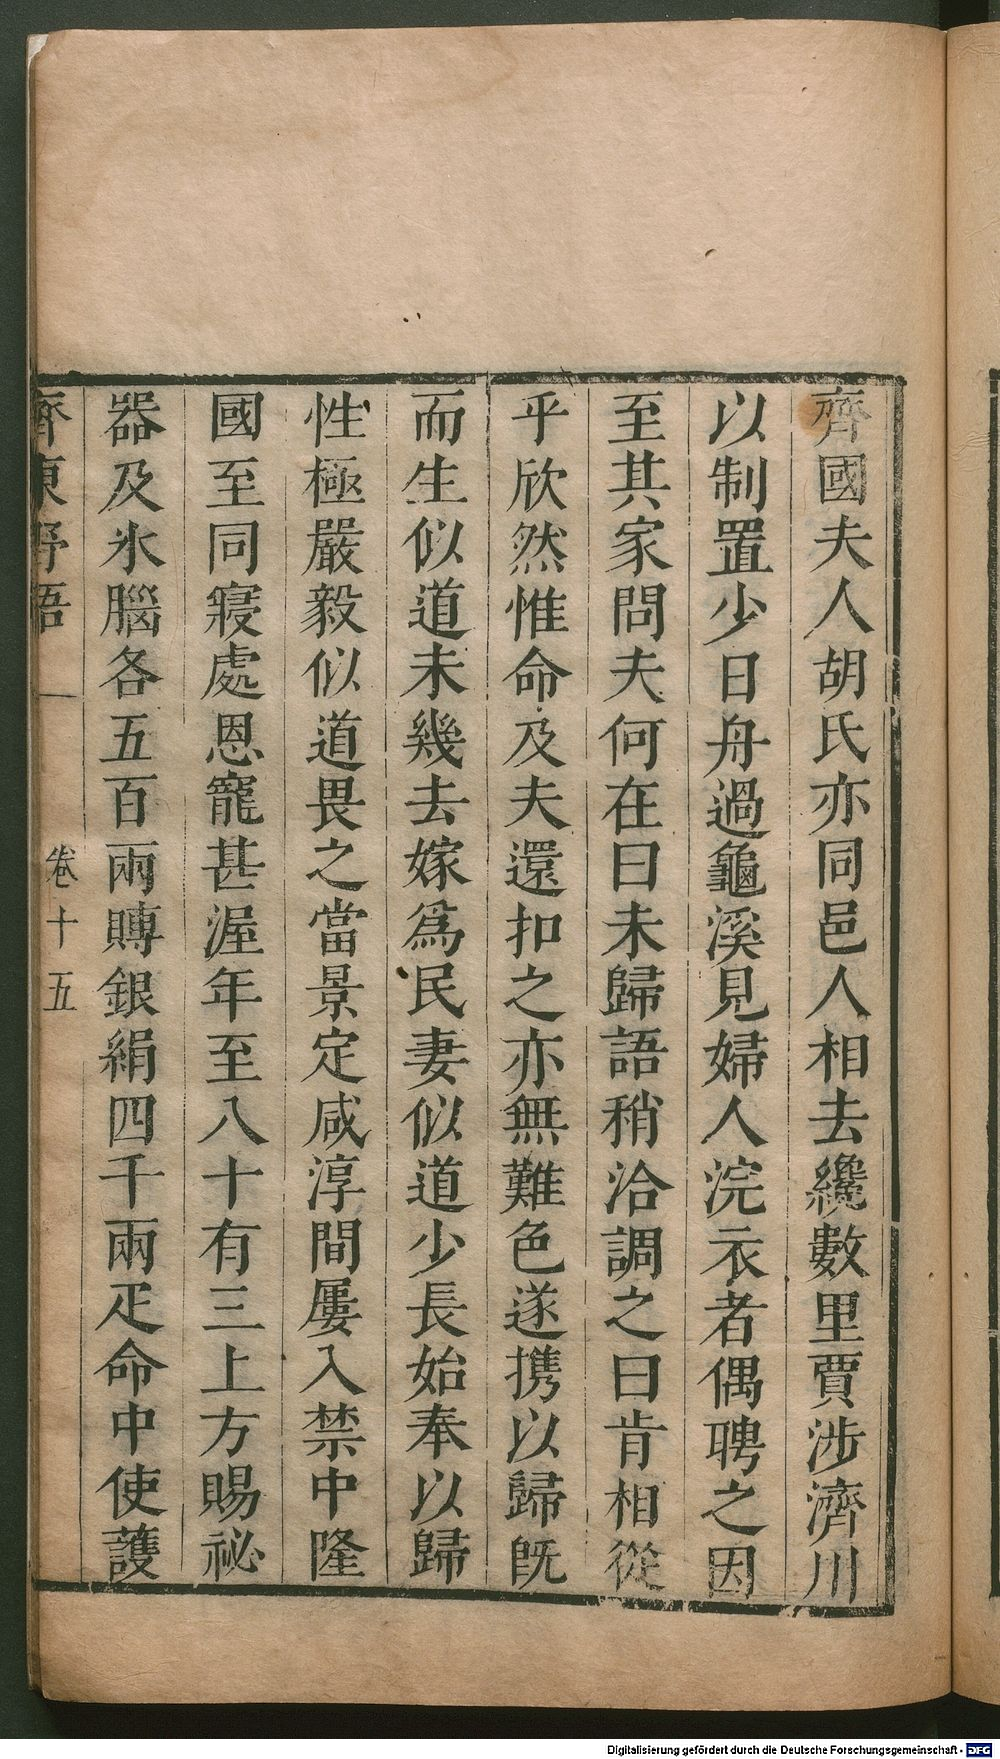 齊國夫人胡氏亦同邑人相去纔數里賈涉濟川
以制置少日舟過龜溪見婦人浣衣者偶聘之因
至其家問夫何在曰未歸語稍洽調之曰肯相從
乎欣然惟命及夫還扣之亦無難色遂携以歸旣
而生似道未幾去嫁爲民妻似道少長始奉以歸
性極嚴毅似道畏之當景定咸淳間屢入禁中隆
國至同寢處恩寵甚渥年至八十有三上方賜祕
器及氷腦各五百兩賻銀絹四千兩疋命中使護
齊東野語 卷十五
Digitalisierung gefördert durch die Deutsche Forschungsgemeinschaft - DFG